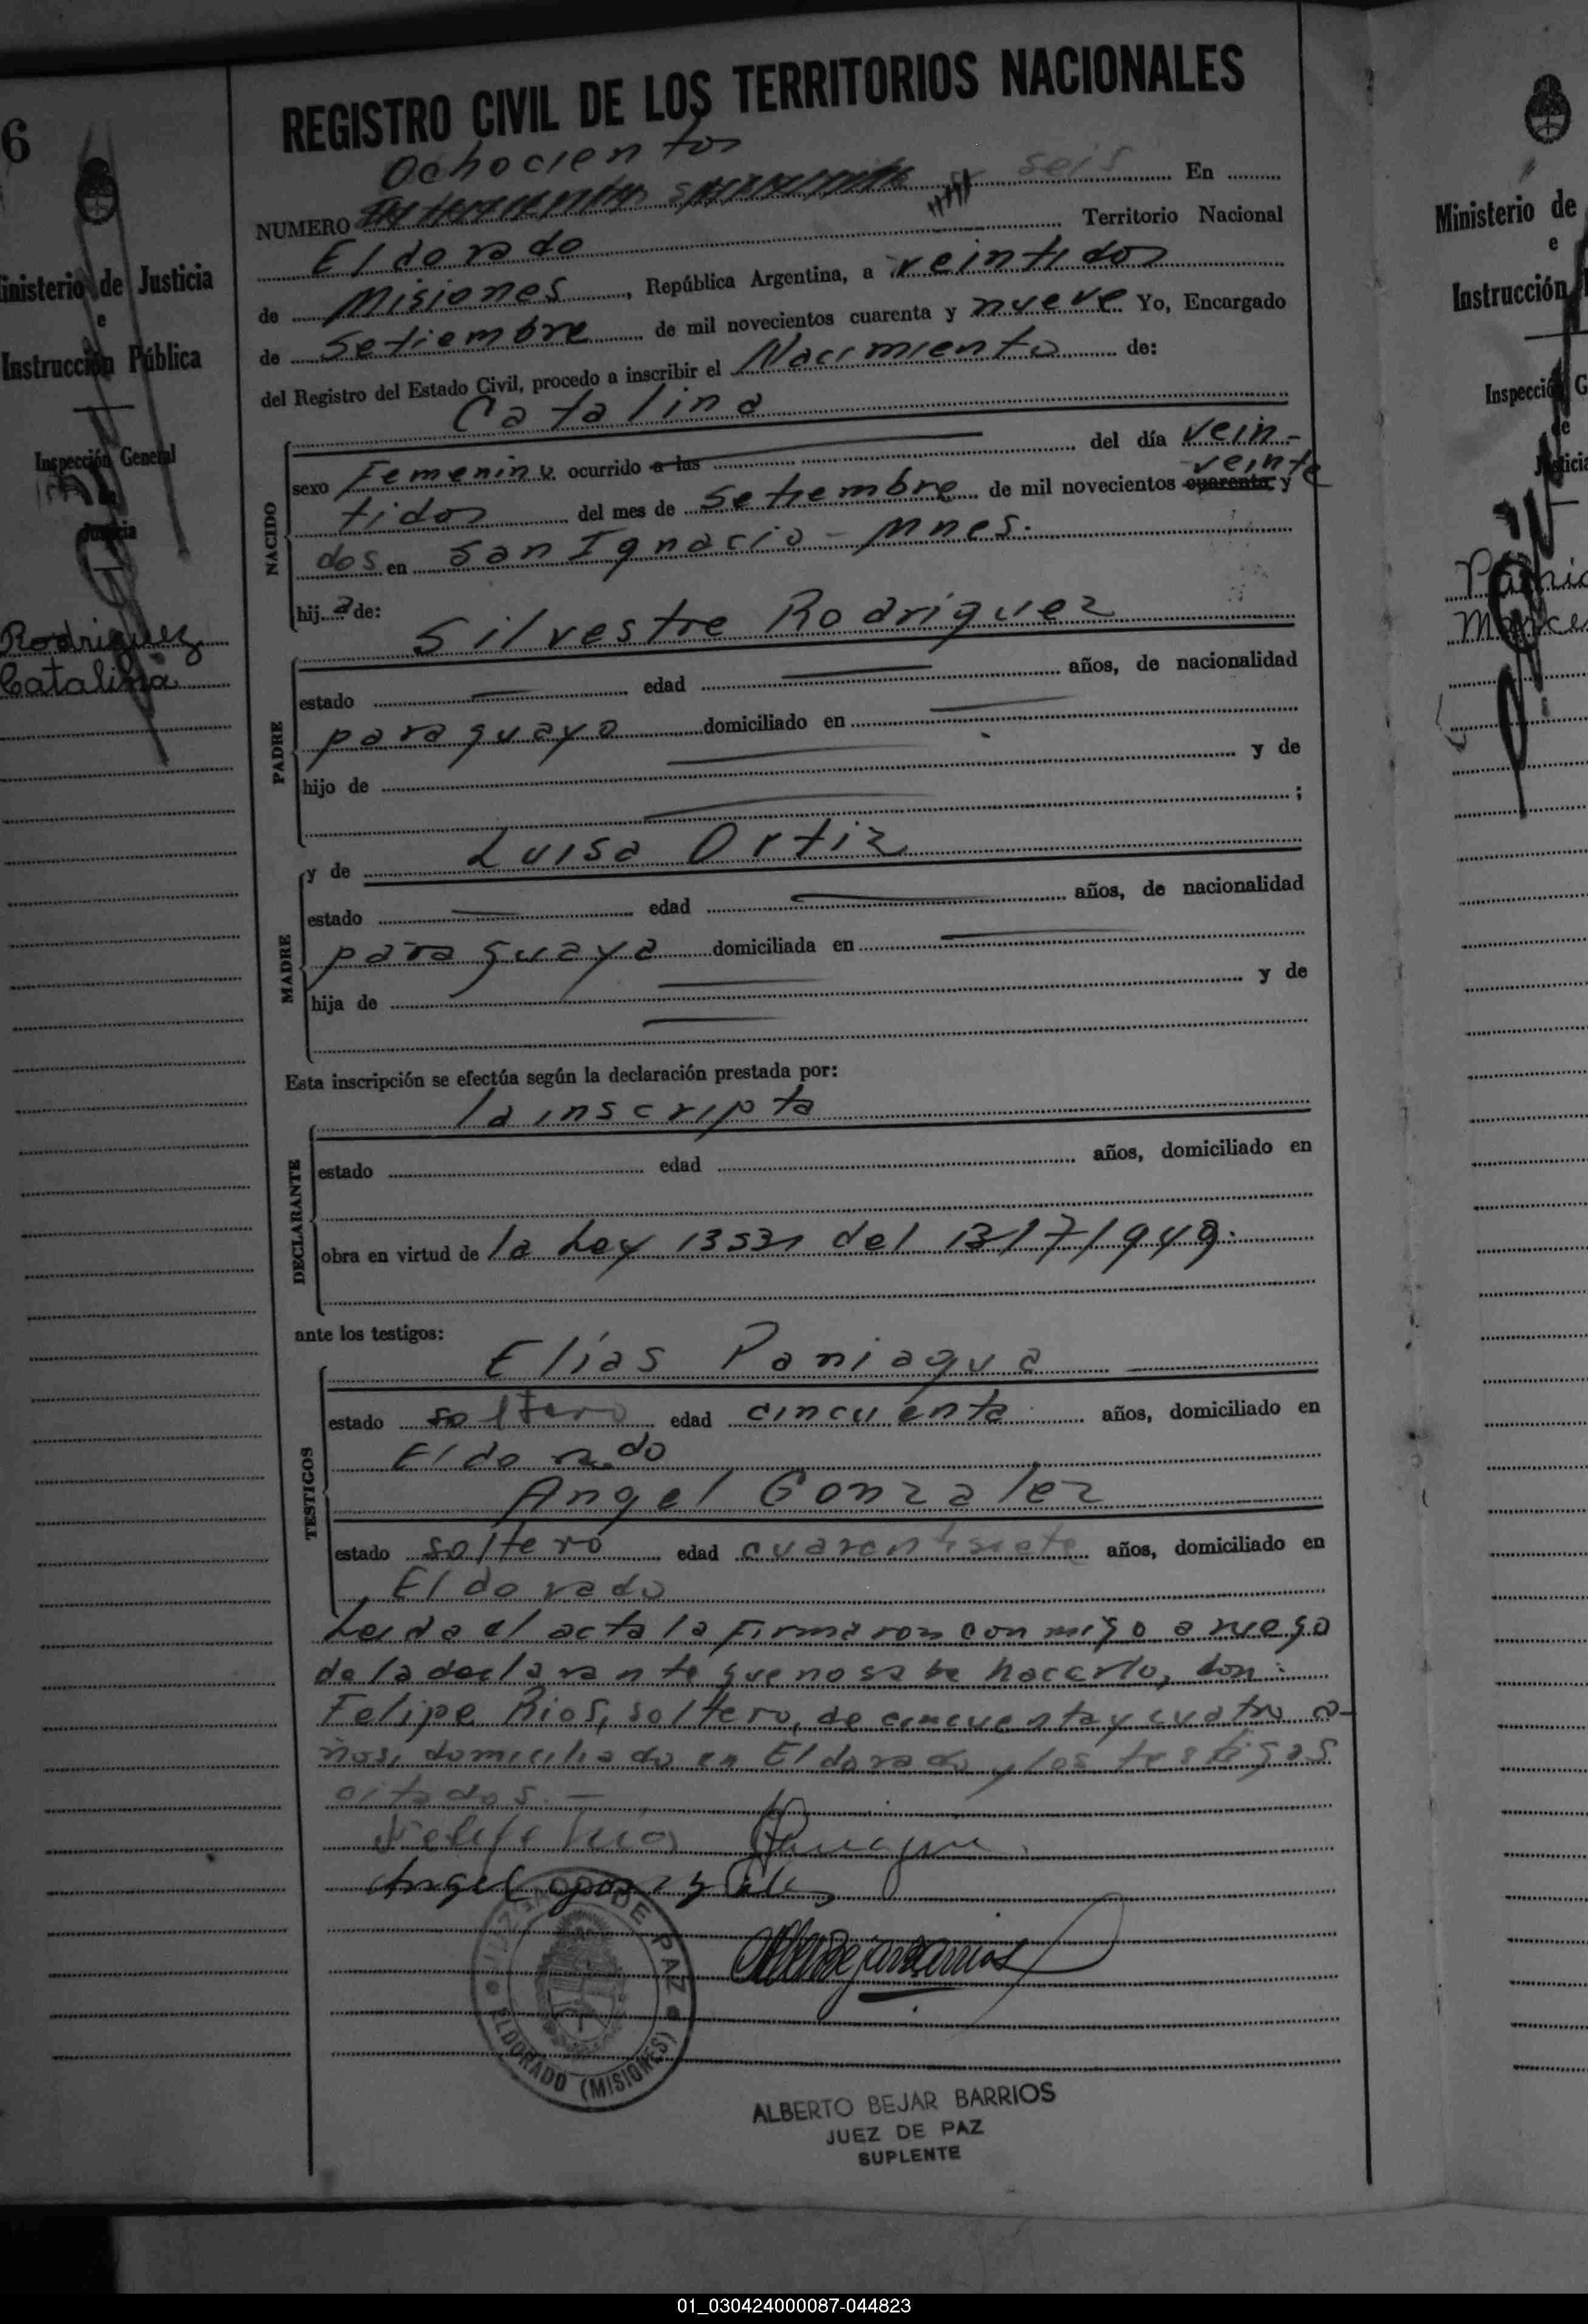 REGISTRO CIVIL DE LOS TERRITORIOS NACIONALES
Ochocientos
NUMERO seis En
Eldorado Territorio Nacional
de Misiones, República Argentina, a veintidos
de Setiembre de mil novecientos cuarenta y nueve Yo, Encargado
del Registro del Estado Civil, procedo a inscribir el Nacimiento de:
Catalina
NACIDO
sexo Femenino ocurrido a las del día vein-
tidos del mes de Setiembre de mil novecientos cuarenta y veinte
dos en San Ignacio - Mnes.
hij a de:
Silvestre Rodriguez
PADRE
estado edad años, de nacionalidad
paraguayo domiciliado en
hijo de y de
;
MADRE
y de Luisa Ortiz
estado edad años, de nacionalidad
paraguaya domiciliada en
hija de y de
Esta inscripción se efectúa según la declaración prestada por:
la inscripta
DECLARANTE
estado edad años, domiciliado en
obra en virtud de la Ley del 13/7/949.
ante los testigos:
TESTIGOS
Elías Paniagua
estado soltero edad cincuenta años, domiciliado en
Eldorado
Angel Gonzalez
estado soltero edad cuarentisiete años, domiciliado en
Eldorado
Leida el acta la firmaron conmigo a ruego
de la declarante que no sabe hacerlo, don:
Felipe Rios, soltero, de cincuenta y cuatro a-
ños, domiciliado en Eldorado y los testigos
citados.-
Angel
JUZGADO DE PAZ
ELDORADO (MISIONES)
ALBERTO BEJAR BARRIOS
JUEZ DE PAZ
SUPLENTE
6
inisterio de Justicia
e
Instrucción Pública
Inspección General
de
Justicia
Rodriguez
Catalina
Ministerio de
e
Instrucción
Inspección G
de
Justicia
01_030424000087-044823